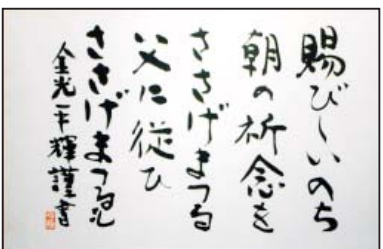 賜びしいのち
朝の祈念を
ささげまつる
い父に従ひ
ささげまつるも
金光平輝謹書